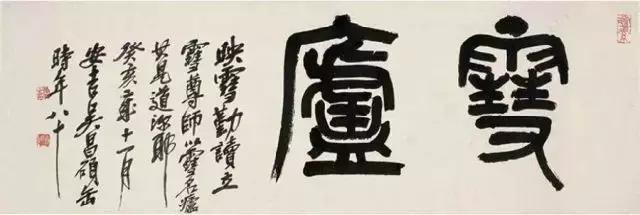 雪廬
映雪勤讀立
雪尊師以雪名廬
見道深耶
癸亥歲十一月
安吉吳昌碩缶
時年八十